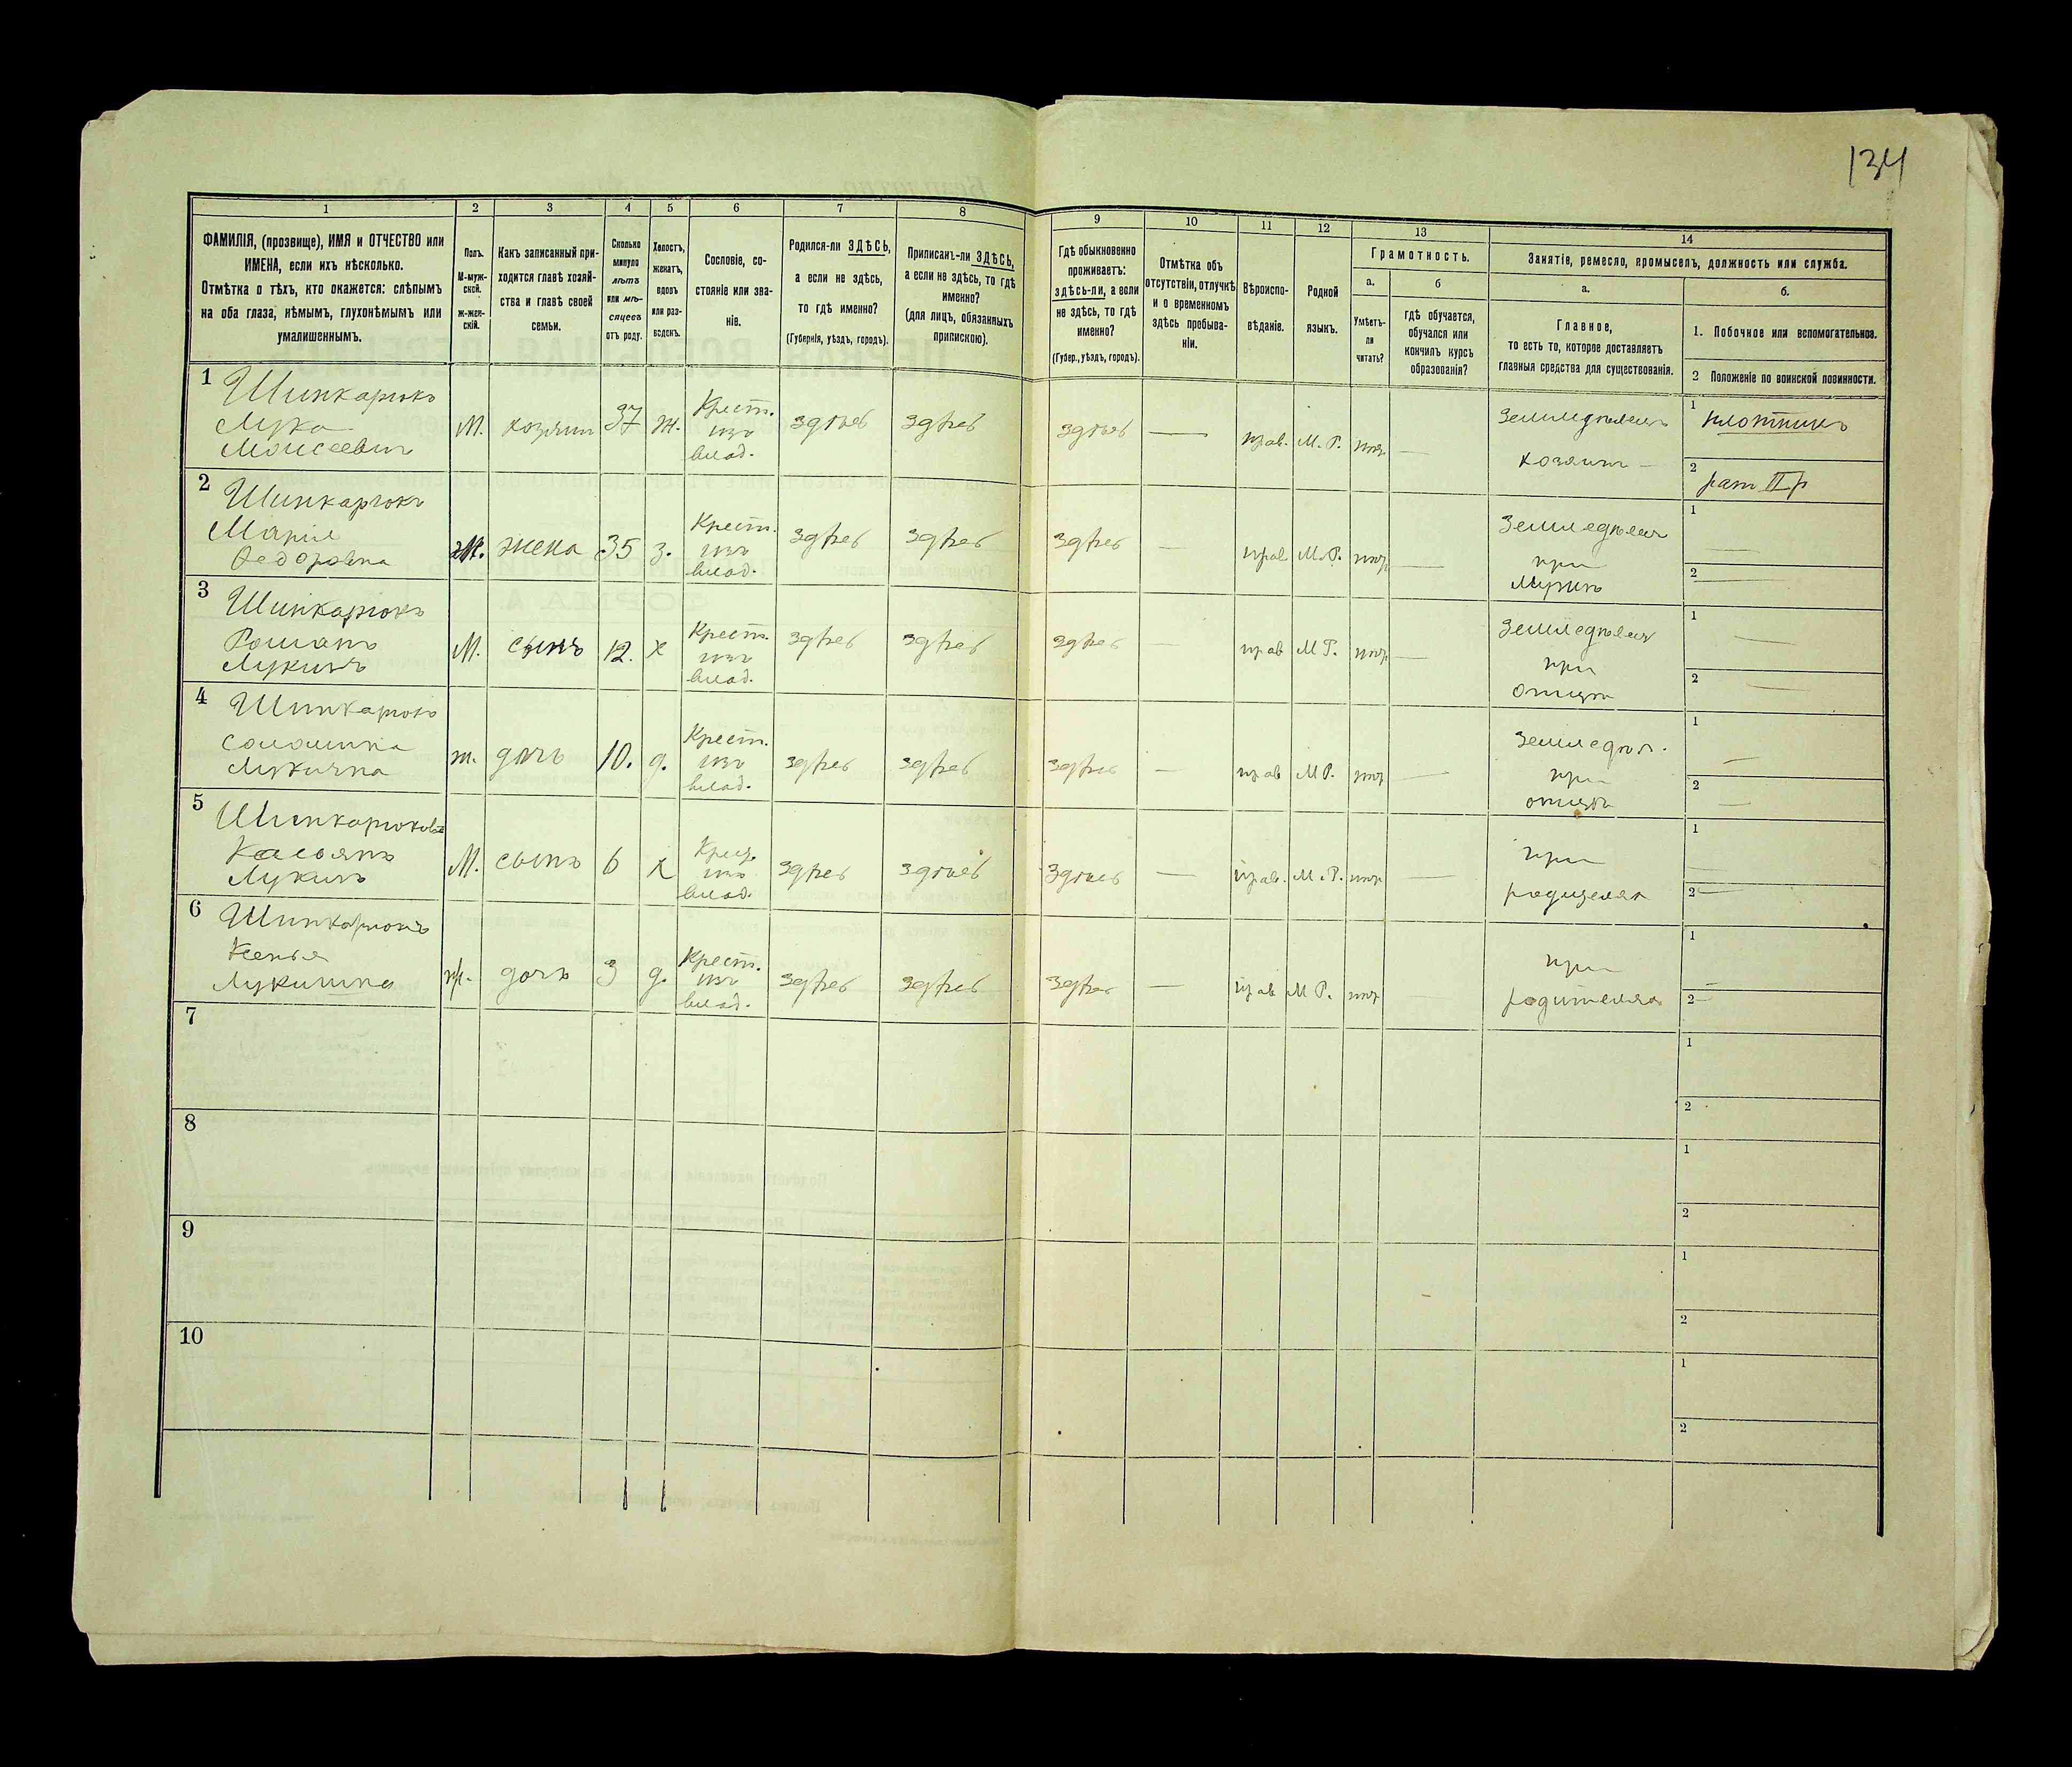 134
1 2 3 4 5 6 7 8 9 10 11 12 13 14
ФАМИЛІЯ, (прозвище), ИМЯ и ОТЧЕСТВО или
ИМЕНА, если ихъ нѣсколько.
Отмѣтка о тѣхъ, кто окажется: слѣпымъ
на оба глаза, нѣмымъ, глухонѣмымъ или
умалишеннымъ.
Полъ.
М-муж-
ской.
ж-жен-
скій.
Какъ записанный при-
ходится главѣ хозяй-
ства и главѣ своей
семьи.
Сколько
минуло
лѣтъ
или мѣ-
сяцевъ
отъ роду.
Холостъ,
женатъ,
вдовъ
или раз-
веденъ.
Сословіе, со-
стояніе или зва-
ніе.
Родился-ли ЗДѢСЬ,
а если не здѣсь,
то гдѣ именно?
(Губернія, уѣздъ, городъ).
Приписанъ-ли ЗДѢСЬ,
а если не здѣсь, то гдѣ
именно?
(для лицъ, обязанныхъ
припискою).
Гдѣ обыкновенно
проживаетъ:
здѣсь-ли, а если
не здѣсь, то гдѣ
именно?
(Губер., уѣздъ, городъ).
Отмѣтка объ
отсутствіи, отлучкѣ
и о временномъ
здѣсь пребыва-
ніи.
Вѣроиспо-
вѣданіе.
Родной
языкъ.
Грамотность.
а.
Умѣетъ-
ли
читать?
б
гдѣ обучается,
обучался или
кончилъ курсъ
образованія?
Занятіе, ремесло, промыселъ, должность или служба.
а.
Главное,
то есть то, которое доставляетъ
главныя средства для существованія.
б.
1. Побочное или вспомогательное.
2 Положеніе по воинской повинности.
1
Шинкарюкъ
Лука
Моисеевичъ
М. хозяинъ 37 ж.
Крест.
изъ
влад.
здѣсь здѣсь здѣсь — прав. М. Р. —
Земледѣлецъ
хозяинъ —
1 плотникъ
2 рат II р
2
Шинкарюкъ
Марія
Федоровна
ж. жена 35 з.
Крест.
изъ
влад.
здѣсь здѣсь здѣсь — прав М. Р. —
Земледѣлец
при
мужѣ
1 —
2 —
3
Шинкарюкъ
Романъ
Лукинъ
М. сынъ 12. х
Крест.
изъ
влад.
здѣсь здѣсь здѣсь — прав М Р. —
Земледѣлец
при
отцѣ
1 —
2 —
4
Шинкарюкъ
Соломина
Лукична
ж. дочь 10. д.
Крест.
изъ
влад.
здѣсь здѣсь здѣсь — прав М Р. —
Земледѣл.
при
отцѣ
1 —
2 —
5
Касьянъ
Лукинъ
М. сынъ 6 х
изъ
влад.
здѣсь здѣсь здѣсь — прав. М. Р. —
при
1 —
2 —
6
Шинкарюкъ
Ксенья
ж. дочь 3 д.
Крест.
изъ
влад.
здѣсь здѣсь здѣсь — прав М Р.
при
родителях
1 —
2 —
7
1
2
8
1
2
9
1
2
10
1
2